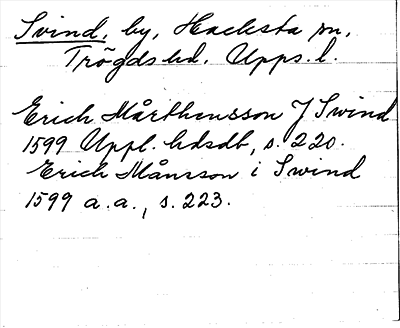 Svind, by, Hacksta sn,
Trögds hd. Upps. l.
Erich Mårthensson J Swind
1599 Uppl. hdsdb, s. 220.
Erich Månsson i Swind
1599 a. a., s. 223.